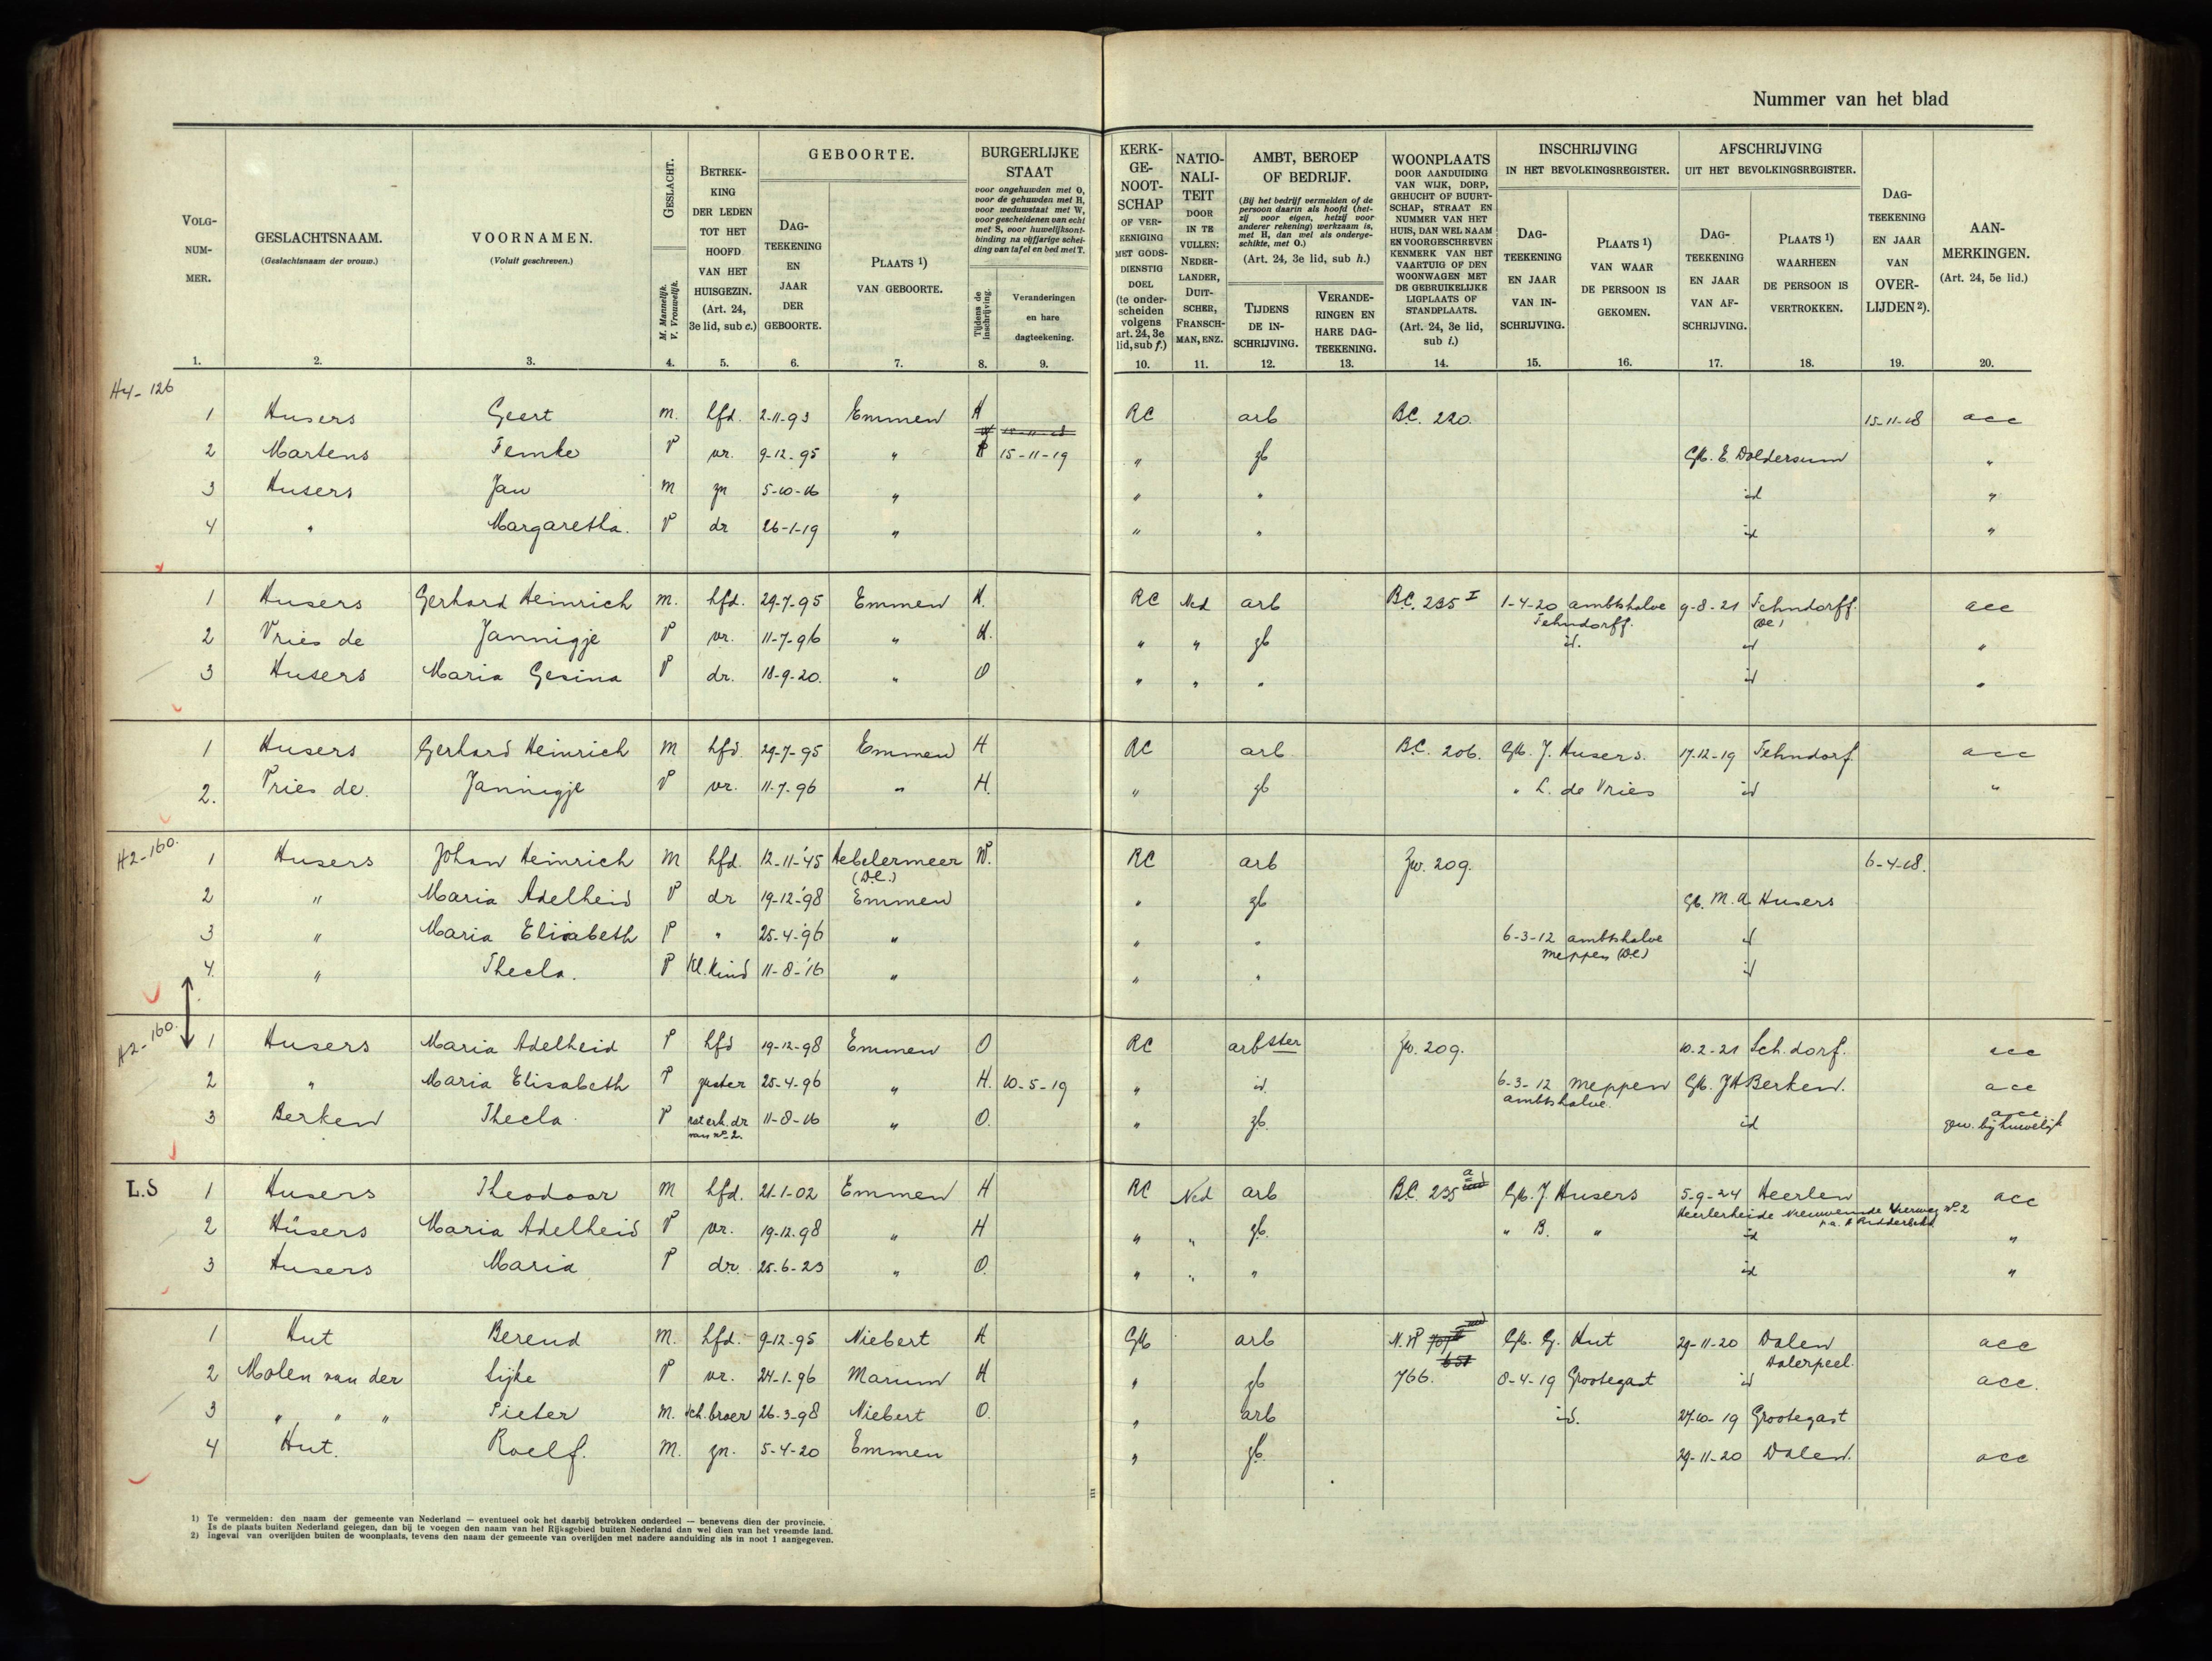 Nummer van het blad
VOLG-NUM-MER.
GESLACHTSNAAM. (Geslachtsnaam der vrouw.)
VOORNAMEN. (Voluit geschreven.)
GESLACHT. M. Mannelijk. V. Vrouwelijk.
BETREK-KING DER LEDEN TOT HET HOOFD VAN HET HUISGEZIN. (Art. 24, 3e lid, sub c.)
GEBOORTE.
DAG-TEEKENING EN JAAR DER GEBOORTE.
PLAATS 1) VAN GEBOORTE.
BURGERLIJKE STAAT
voor ongehuwden met O, voor de gehuwden met H, voor weduwstaat met W, voor gescheidenen van echt met S, voor huwelijksont-binding na vijfjarige schei-ding van tafel en bed met T.
Tijdens de inschrijving.
Veranderingen en hare dagteekening.
KERK-GE-NOOT-SCHAP OF VER-EENIGING MET GODS-DIENSTIG DOEL (te onder-scheiden volgens art. 24, 3e lid, sub f.)
NATIO-NALI-TEIT DOOR IN TE VULLEN: NEDER-LANDER, DUIT-SCHER, FRANSCH-MAN, ENZ.
AMBT, BEROEP OF BEDRIJF.
(Bij het bedrijf vermelden of de persoon daarin als hoofd (het-zij voor eigen, hetzij voor anderer rekening) werkzaam is, met H, dan wel als onderge-schikte, met O.)
(Art. 24, 3e lid, sub h.)
TIJDENS DE IN-SCHRIJVING.
VERANDE-RINGEN EN HARE DAG-TEEKENING.
WOONPLAATS DOOR AANDUIDING VAN WIJK, DORP, GEHUCHT OF BUURT-SCHAP, STRAAT EN NUMMER VAN HET HUIS, DAN WEL NAAM EN VOORGESCHREVEN KENMERK VAN HET VAARTUIG OF DEN WOONWAGEN MET DE GEBRUIKELIJKE LIGPLAATS OF STANDPLAATS. (Art. 24, 3e lid, sub i.)
INSCHRIJVING IN HET BEVOLKINGSREGISTER.
DAG-TEEKENING EN JAAR VAN IN-SCHRIJVING.
PLAATS 1) VAN WAAR DE PERSOON IS GEKOMEN.
AFSCHRIJVING UIT HET BEVOLKINGSREGISTER.
DAG-TEEKENING EN JAAR VAN AF-SCHRIJVING.
PLAATS 1) WAARHEEN DE PERSOON IS VERTROKKEN.
DAG-TEEKENING EN JAAR VAN OVER-LIJDEN 2).
AAN-MERKINGEN. (Art. 24, 5e lid.)
1. 2. 3. 4. 5. 6. 7. 8. 9. 10. 11. 12. 13. 14. 15. 16. 17. 18. 19. 20.
H4-126
1 Husers Geert M. hfd. 2-11-93 Emmen H RC arb B.C. 220. 15-11-18 acc
2 Martens Femke V vr. 9-12-95 " 15-11-19 " zb Gk. E. Doldersum "
3 Husers Jan M zn 5-10-16 " " " id "
4 " Margaretha. V dr 26-1-19 " " " id "
1 Husers Gerhard Heinrich M. hfd. 29-7-95 Emmen H. RC Ned arb B.C. 235 I 1-4-20 ambtshalve Fehndorff. 9-8-21 Fehndorff. acc
2 Vries de Jannigje V vr. 11-7-96 " H. " " zb id. id "
3 Husers Maria Gesina V dr. 18-9-20. " O " " " id "
1 Husers Gerhard Heinrich M hfd 29-7-95 Emmen H RC arb B.C. 206. Gk. J. Husers. 17-12-19 Fehndorf acc
2. Vries de. Jannigje V vr. 11-7-96 " H. " zb " L. de Vries id "
H2-160.
1 Husers Johan Heinrich M hfd. 12-11-'45 Hebelermeer W. RC arb Zw. 209. 6-4-18.
(D.l.)
2 " Maria Adelheid V dr 19-12-'98 Emmen " zb Gk. M.A. Husers
3 " Maria Elisabeth V " 25-4-'96 " " " 6-3-12 ambtshalve id
Meppen (D.l.)
4. " Thecla. V kl. kind 11-8-'16 " " " id
H2-160.
1 Husers Maria Adelheid V hfd 19-12-98 Emmen O RC arbster Zw. 209. 10-2-21 Sch.dorf. acc
2 " Maria Elisabeth V zuster 25-4-96 " H. 10-5-19 " id. 6-3-12 Meppen Gk. JH Berken. acc
ambtshalve.
3 Berken Thecla V nat erk. dr 11-8-16 " O. " zb. id acc
van no 2. gew. bij huwelijk
L.S 1 Husers Theodoor M hfd. 21-1-02 Emmen H RC Ned arb B.C. 235 a Gk. J. Husers 5-9-24 Heerlen acc
2 Hüsers Maria Adelheid V vr. 19-12-98 " H " " zb. " B. " id "
3 Husers Maria V dr. 25-6-23 " O. " " " id "
1 Hut Berend M. hfd. 9-12-95 Niebert H Gk arb Gk. G. Hut 29-11-20 Dalen acc
Dalerpeel.
2 Molen van der Sijke V vr. 24-1-96 Marum H " zb 766. 8-4-19 Grootegast id acc.
3 " " " Pieter M. sch.broer 26-3-98 Niebert O. " arb id. 27-10-19 Grootegast
4 Hut. Roelf. M. zn. 5-4-20 Emmen " zb. 29-11-20 Dalen. acc
1) Te vermelden: den naam der gemeente van Nederland — eventueel ook het daarbij betrokken onderdeel — benevens dien der provincie.
Is de plaats buiten Nederland gelegen, dan bij te voegen den naam van het Rijksgebied buiten Nederland dan wel dien van het vreemde land.
2) Ingeval van overlijden buiten de woonplaats, tevens den naam der gemeente van overlijden met nadere aanduiding als in noot 1 aangegeven.